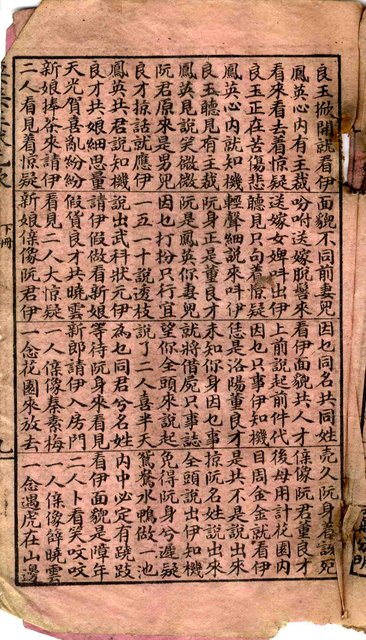 良玉掀開就看伊 面貌不同前妻兒 因乜同名共同姓 久阮身着該死
鳳英心內有主裁 吩咐送嫁脫髻來 看伊面貌共人才 董良才
看來看去着驚疑 送嫁女婢叫出伊 上前說起前件代 後母用計花園內
良玉正在苦傷悲 聽見只向着驚疑 因乜只事伊知機 目周金金就看伊
鳳英心內就知機 輕聲細說來叫伊 恁是洛陽董良才 是共不是說出來
良玉聽見有主裁 阮身正是董良才 未知你身因乜事 掠阮名姓說出來
鳳英見說笑微微 阮是鳳英你妻兒 就將借屍只事誌 全頭說出伊知機
阮君原來是男兒 因乜打扮只行宜 望你全頭來說起 免得阮身兮遲疑
良才掠話就應伊 一五一十說透枝 說了二人喜半天 鴛鴦水鴨做一池
鳳英共君說知機 說出武科狀元伊 為乜同君兮名姓 內中必定有蹺蹊
良才共娘細思量 請伊假做看新娘 等待阮身來看見 看伊面貌是障年
天光賀喜亂紛紛 假賀良才共曉雲 新郎請伊入房門 二人卜看笑吱吱
新娘捧茶來請伊 看見二人大驚疑 一人係像秦素梅 一人係像薛曉雲
二人看見着驚疑 新娘係像阮君伊 一念花園來放去 一念遇虎在山邊
下冊
九